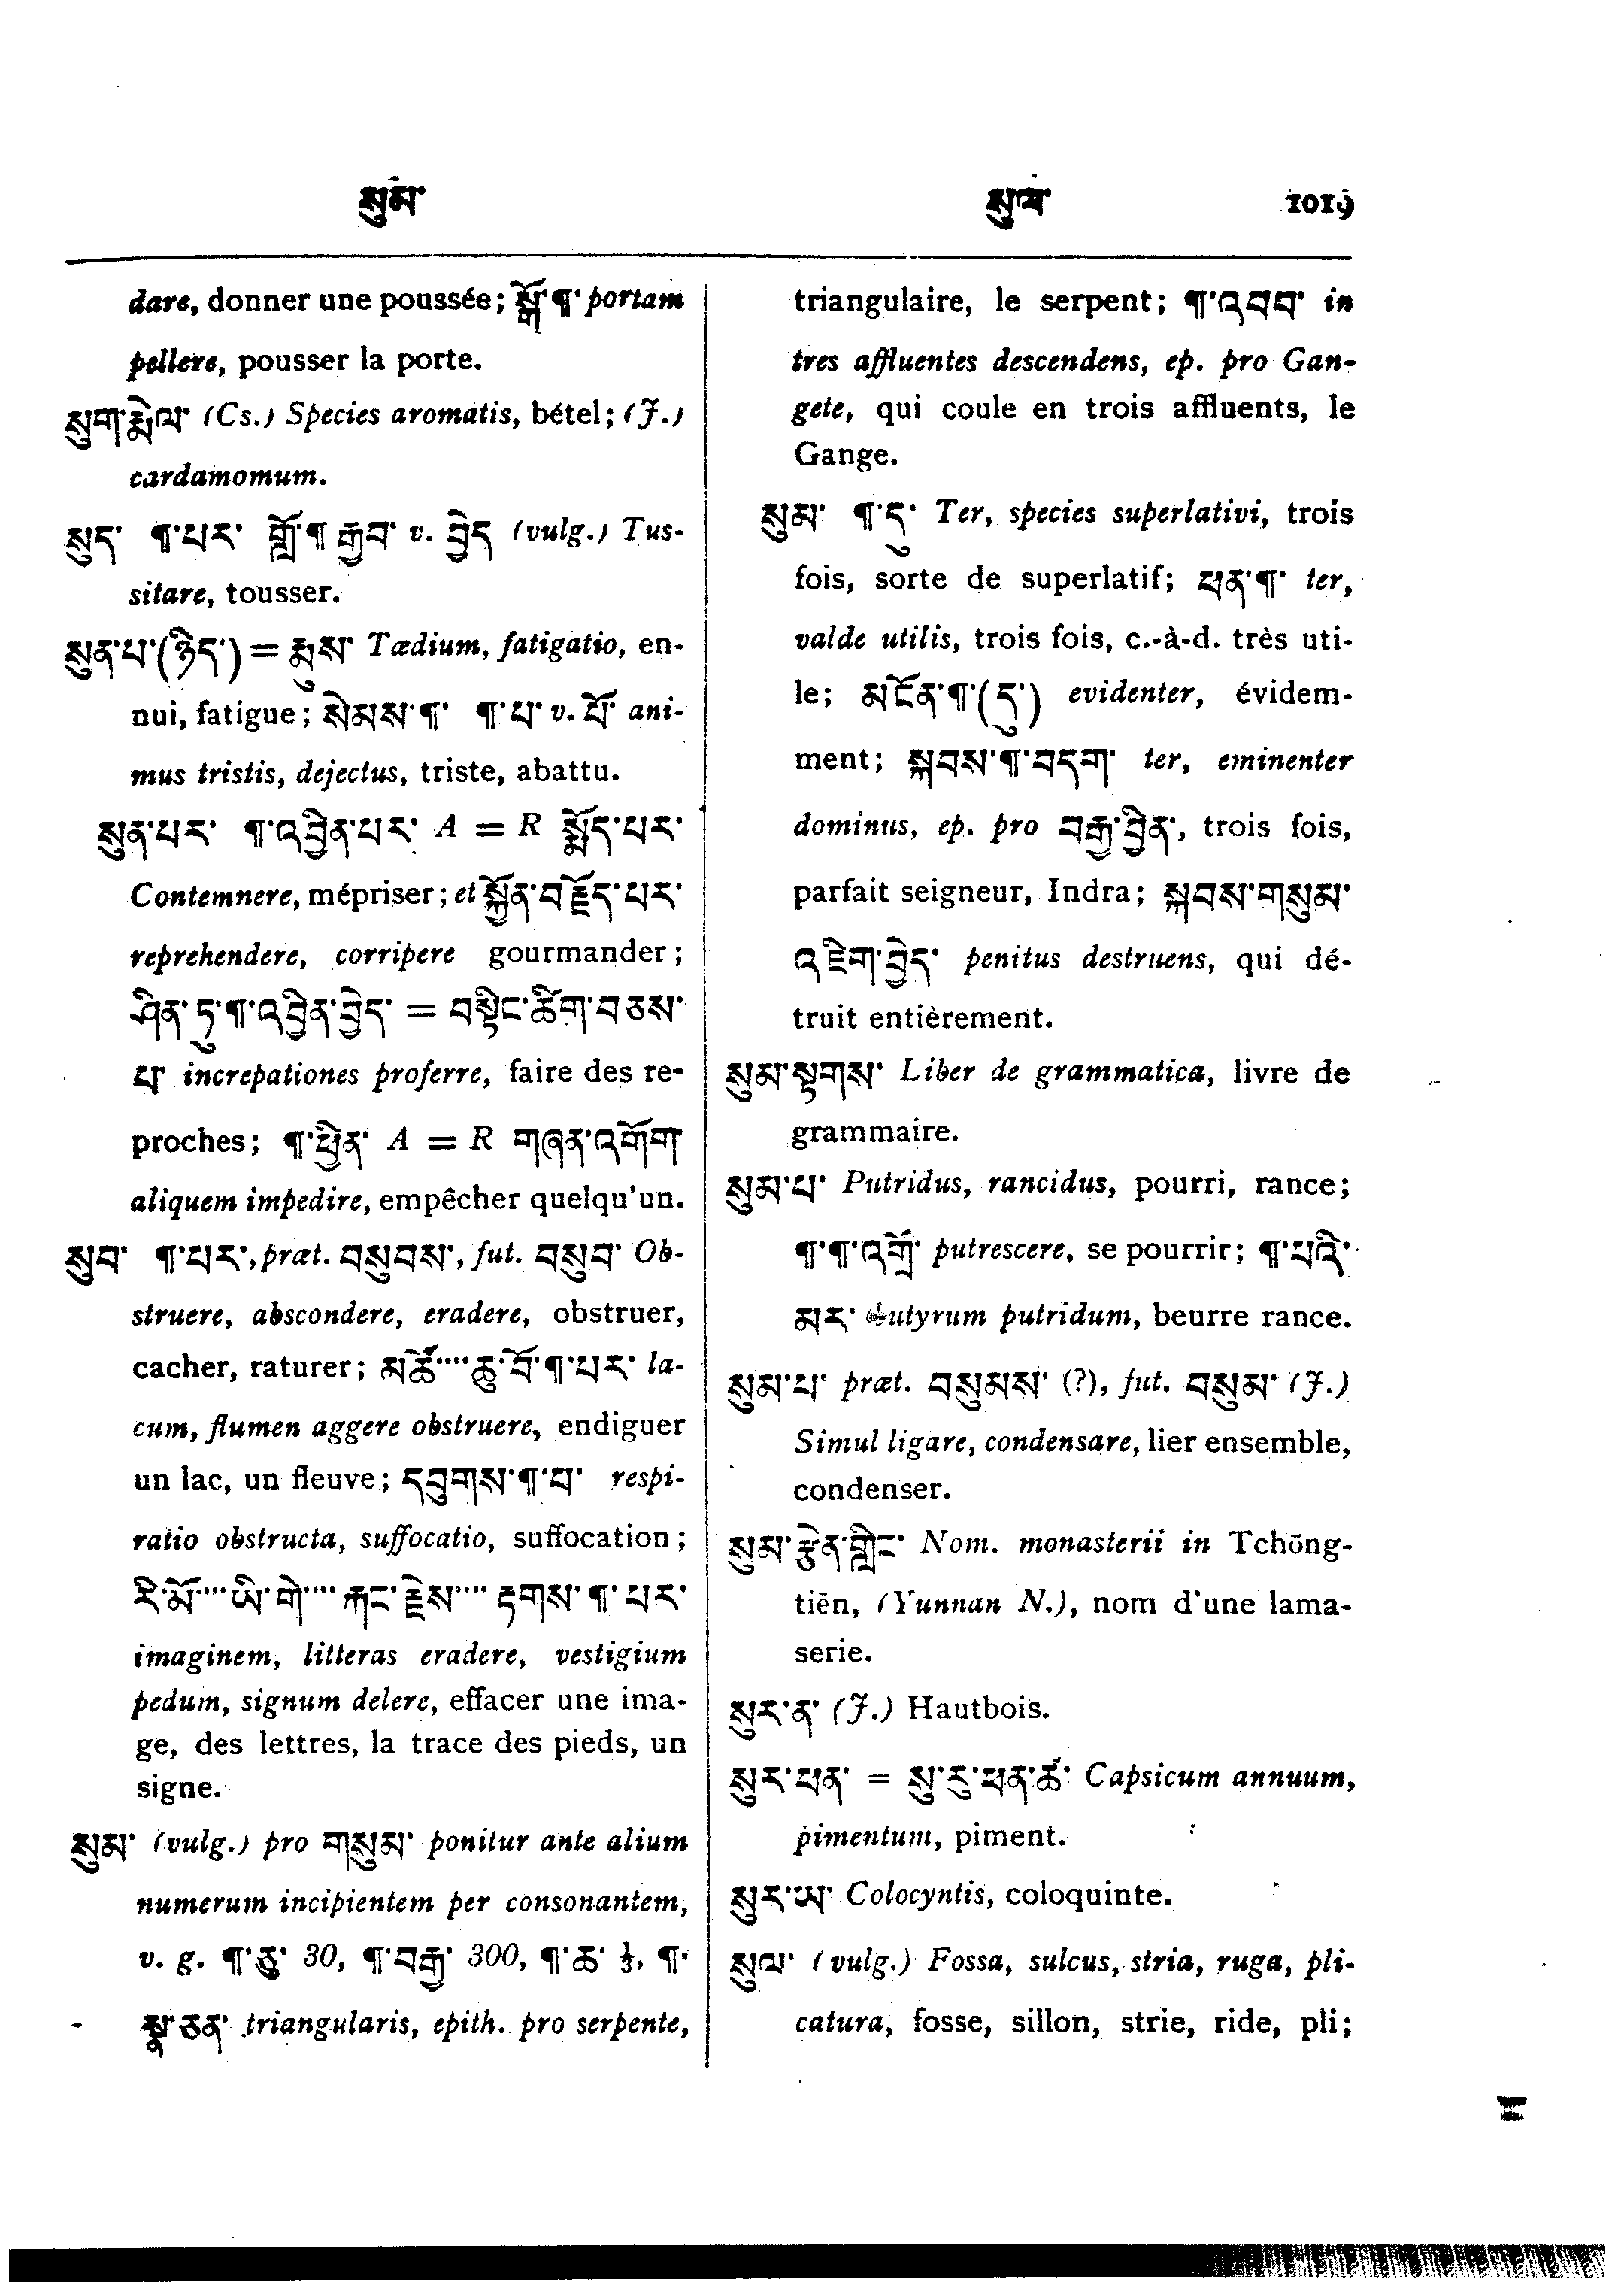 སུམ་ སུལ་ 1019
dare, donner une poussée; སྒོ་¶་ portam
pellere, pousser la porte.
སུག་རྨེལ་ (Cs.) Species aromatis, bétel; (J.)
cardamomum.
སུད་ ¶་པར་ གློ་¶་རྒྱབ་ v. བྱེད (vulg.) Tus-
sitare, tousser.
སུན་པ་(ཉིད་) = རྨུས་ Tædium, fatigatio, en-
nui, fatigue; སེམས་¶་ ¶་པ་ v. པོ་ ani-
mus tristis, dejectus, triste, abattu.
སུན་པར་ ¶་འབྱིན་པར་ A = R སྨོད་པར་
Contemnere, mépriser; et སྐྱོན་བརྗོད་པར་
reprehendere, corripere gourmander;
ཤིན་ཏུ་¶་འབྱིན་བྱེད་ = བསྟིང་ཚིག་བཅས་
པ་ increpationes proferre, faire des re-
proches; ¶་ཕྱིན་ A = R གཞན་འགོག་
aliquem impedire, empêcher quelqu'un.
སུབ་ ¶་པར་, præt. བསུབས་, fut. བསུབ་ Ob-
struere, abscondere, eradere, obstruer,
cacher, raturer; མཚོ་····ཆུ་བོ་¶་པར་ la-
cum, flumen aggere obstruere, endiguer
un lac, un fleuve; དབུགས་¶་པ་ respi-
ratio obstructa, suffocatio, suffocation;
རི་མོ་····ཡི་གེ་····རྐང་རྗེས་····རྟགས་¶་པར་
imaginem, litteras eradere, vestigium
pedum, signum delere, effacer une ima-
ge, des lettres, la trace des pieds, un
signe.
སུམ་ (vulg.) pro གསུམ་ ponitur ante alium
numerum incipientem per consonantem,
v. g. ¶་ཅུ་ 30, ¶་བརྒྱ་ 300, ¶་ཆ་ ⅓, ¶་
སྣ་ཅན་ triangularis, epith. pro serpente,
triangulaire, le serpent; ¶་འབབ་ in
tres affluentes descendens, ep. pro Gan-
gete, qui coule en trois affluents, le
Gange.
སུམ་ ¶་དུ་ Ter, species superlativi, trois
fois, sorte de superlatif; ཕན་¶་ ter,
valde utilis, trois fois, c.-à-d. très uti-
le; མངོན་¶་(དུ་) evidenter, évidem-
ment; སྐབས་¶་བདག་ ter, eminenter
dominus, ep. pro བརྒྱ་བྱིན་, trois fois,
parfait seigneur, Indra; སྐབས་གསུམ་
འཇིག་བྱེད་ penitus destruens, qui dé-
truit entièrement.
སུམ་སྟགས་ Liber de grammatica, livre de
grammaire.
སུམ་པ་ Putridus, rancidus, pourri, rance;
¶་¶་འགྲོ་ putrescere, se pourrir; ¶་པའི་
མར་ butyrum putridum, beurre rance.
སུམ་པ་ præt. བསུམས་ (?), fut. བསུམ་ (J.)
Simul ligare, condensare, lier ensemble,
condenser.
སུམ་རྩེན་གླིང་ Nom. monasterii in Tchōng-
tiēn, (Yunnan N.), nom d'une lama-
serie.
སུར་ན་ (J.) Hautbois.
སུར་ཕན་ = སུ་རུ་ཕན་ཚ་ Capsicum annuum,
pimentum, piment.
སུར་ཡ་ Colocyntis, coloquinte.
སུལ་ (vulg.) Fossa, sulcus, stria, ruga, pli-
catura, fosse, sillon, strie, ride, pli;